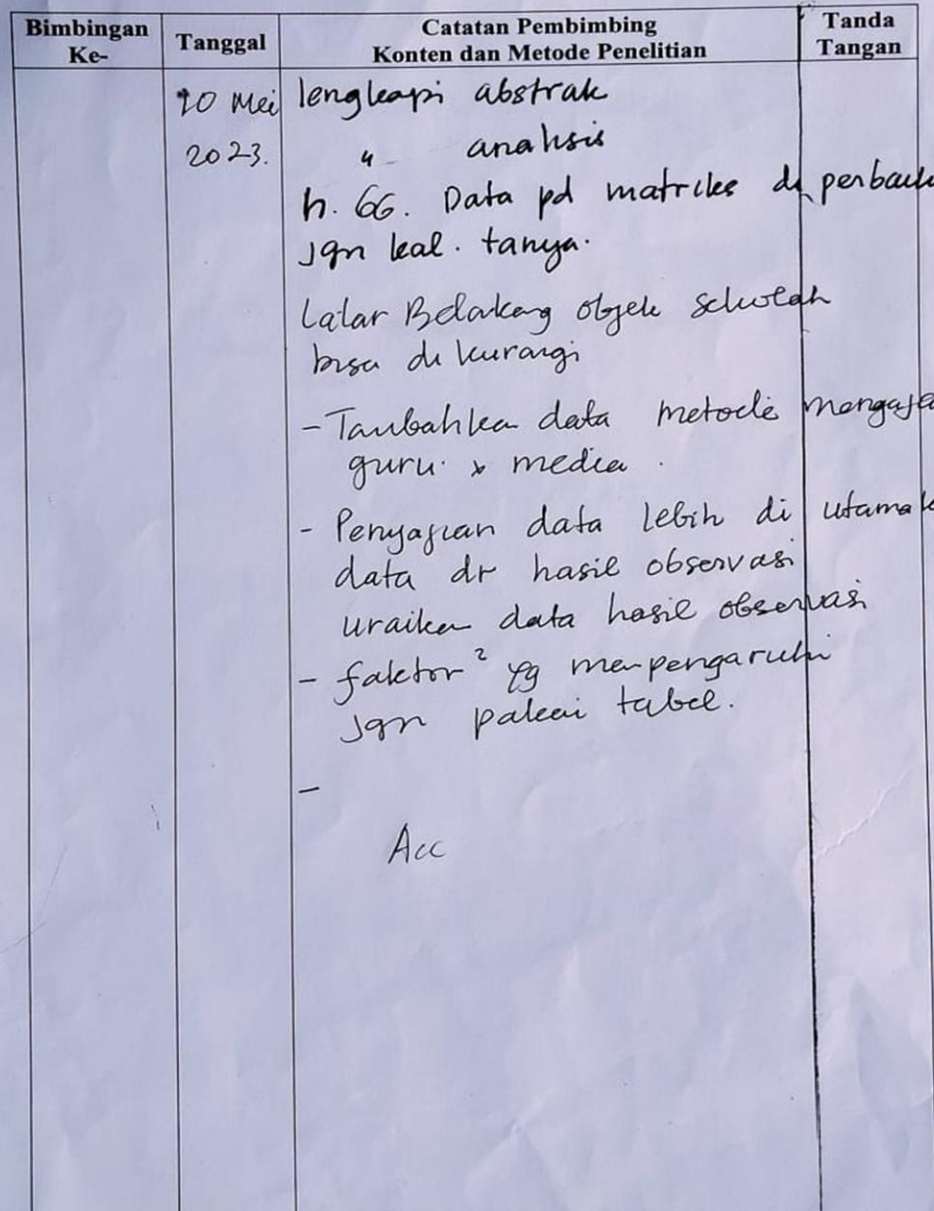 Bimbingan Ke-
Tanggal
Catatan Pembimbing
Konten dan Metode Penelitian
Tanda Tangan
10 Mei
2023.
lengkapi abstrak
" analisis
h. 66. Data pd matriks di perbaik
Jgn kal. tanya.
Latar Belakang objek sekolah
bisa di kurangi
- Tambahkan data metode mengaja
guru. & media.
- Penyajian data lebih di utamak
data dr hasil observasi
uraikan data hasil observasi
- faktor² yg mempengaruhi
Jgn pakai tabel.
-
Acc